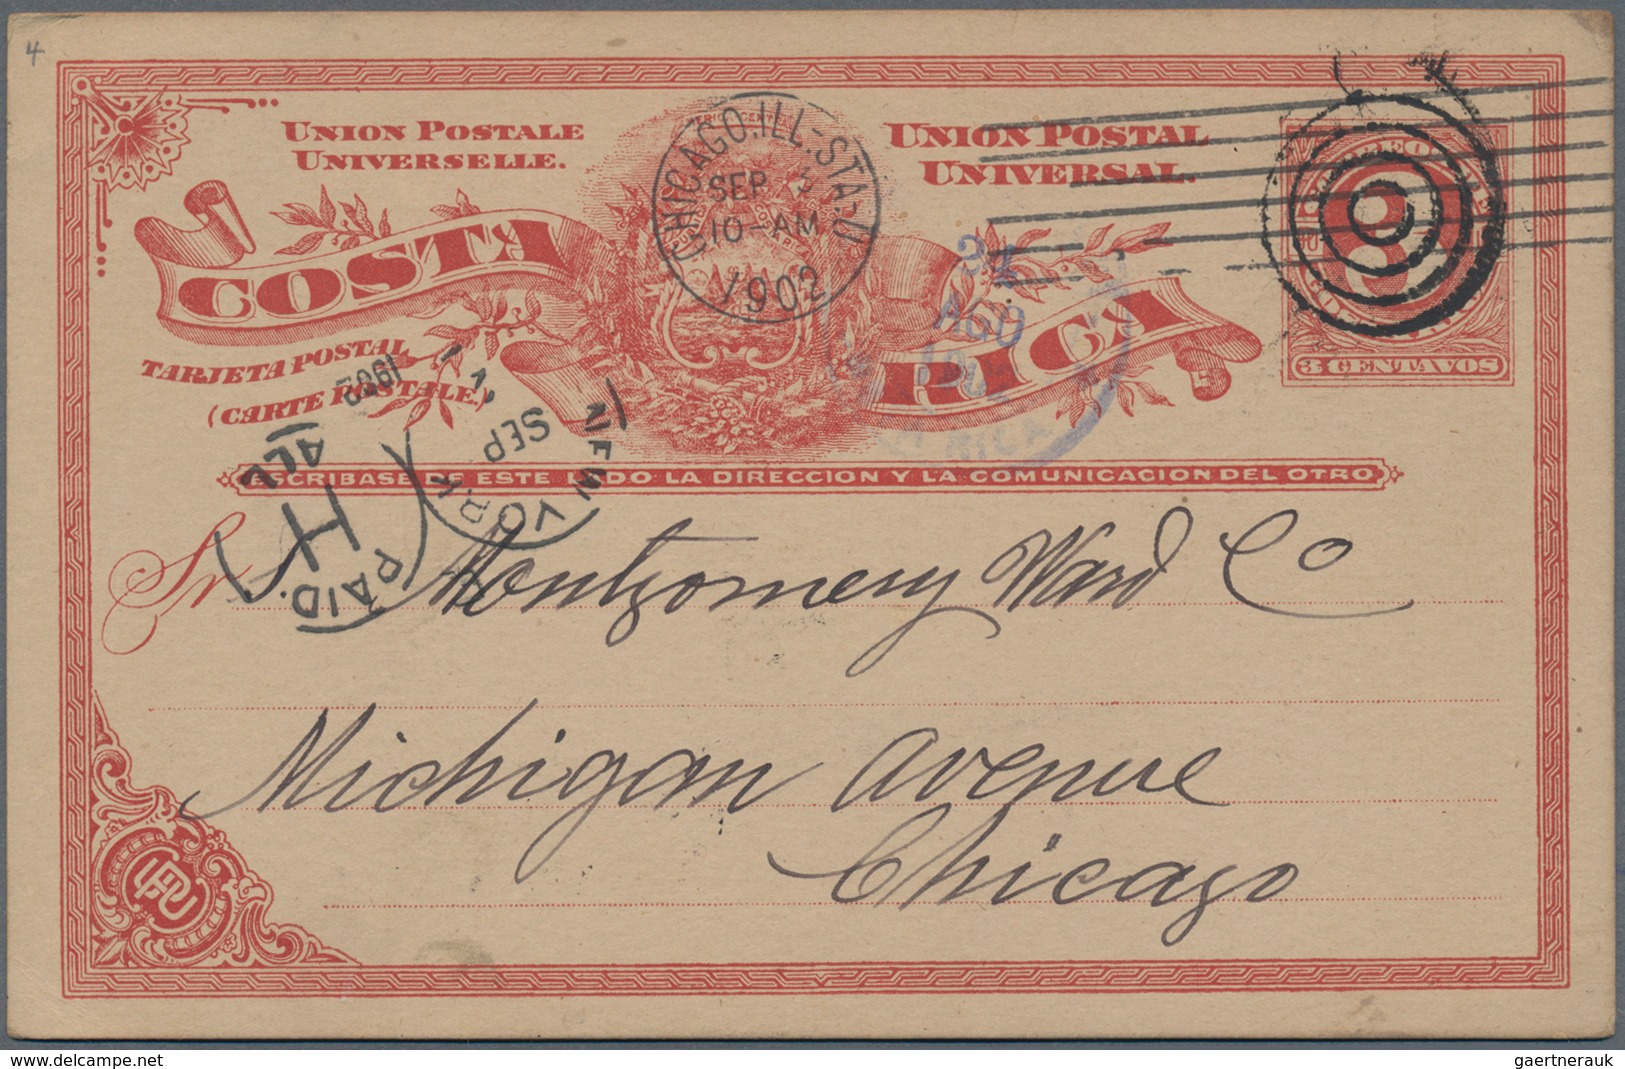 4
UNION POSTALE
UNIVERSELLE.
UNION POSTAL
UNIVERSAL.
COSTA
RICA
CHICAGO, ILL.-STA-U
SEP 3
10-AM
1902
31
AGO
RICA
TARJETA POSTAL
(CARTE POSTALE.)
CORREO
3
3 CENTAVOS
NEW YORK
SEP
1902
PAID
H
ALL
ESCRIBASE DE ESTE LADO LA DIRECCION Y LA COMUNICACION DEL OTRO
Sr S. Montgomery Ward Co
Michigan Avenue
Chicago
www.delcampe.net
gaertnerauk